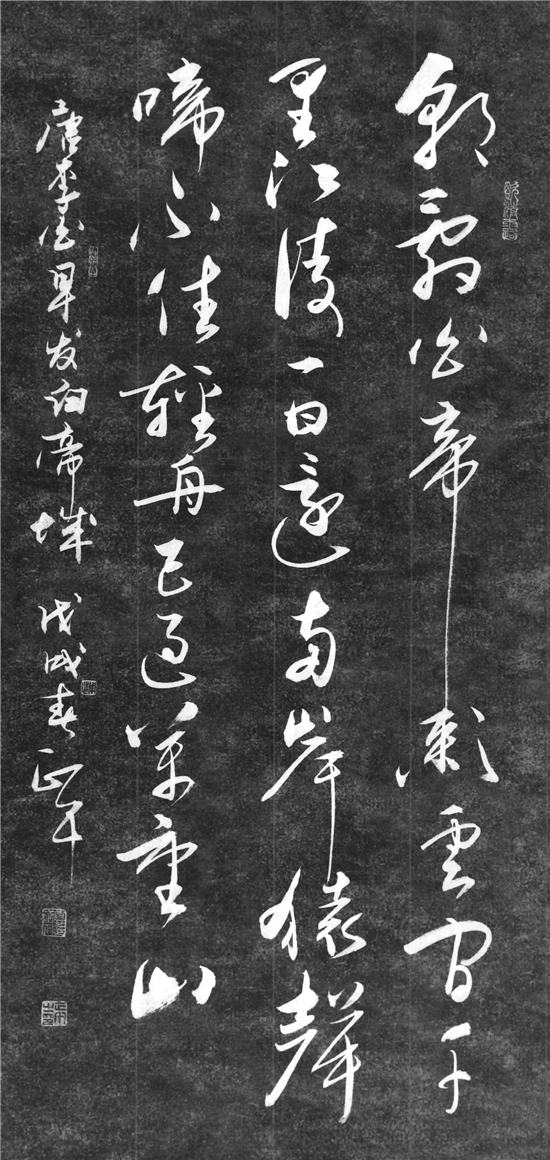 朝辭白帝彩雲間千
里江陵一日還兩岸猿聲
啼不住輕舟已過萬重山
唐李白早发白帝城 戊戌春